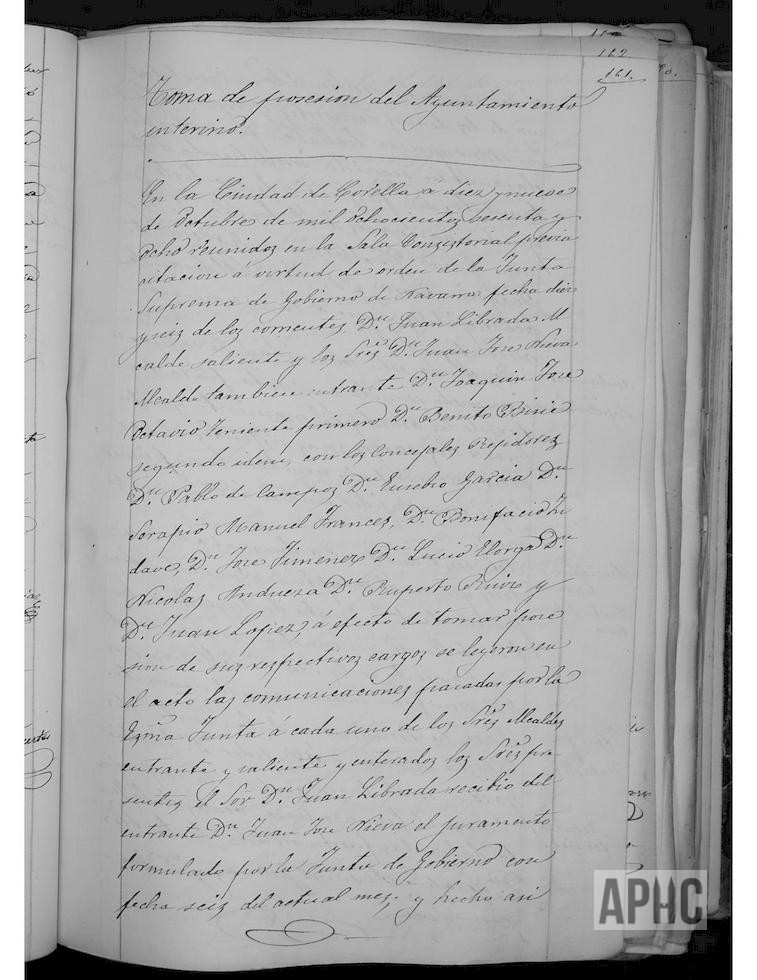 162
161.
Toma de posesion del Ayuntamiento
interino.
En la Ciudad de Corella á diez y nueve
de Octubre de mil ochocientos sesenta y
ocho reunidos en la Sala Consistorial previa
citacion á virtud de orden de la Junta
Suprema de Gobierno de Navarra fecha diez
y seis de los corrientes Dn. Juan Librada Al
calde saliente y los Sres Dn. Juan Jose Nieva
Alcalde tambien entrante Dn. Joaquin Jose
Octavio teniente primero Dn. Benito
segundo idem, con los Concejales Rejidores
Dn. Pablo de Campos Dn. Eusebio Garcia Dn.
Serapio Manuel Frances, Dn. Bonifacio In
dave, Dn. Jose Jimenez Dn. Lucio Elorga Dn.
Nicolas Andueza Dn. Ruperto y
Dn. Juan Lopez, á efecto de tomar pose
sion de sus respectivos cargos se leyeron en
el acto las comunicaciones pasadas por la
Exma Junta á cada uno de los Sres Alcaldes
entrante y saliente y enterados los Sres pre
sentes, el Sor Dn. Juan Librada recibio del
entrante Dn. Juan Jose Nieva el juramento
formulado por la Junta de Gobierno con
fecha seis del actual mes, y hecho asi
APHC